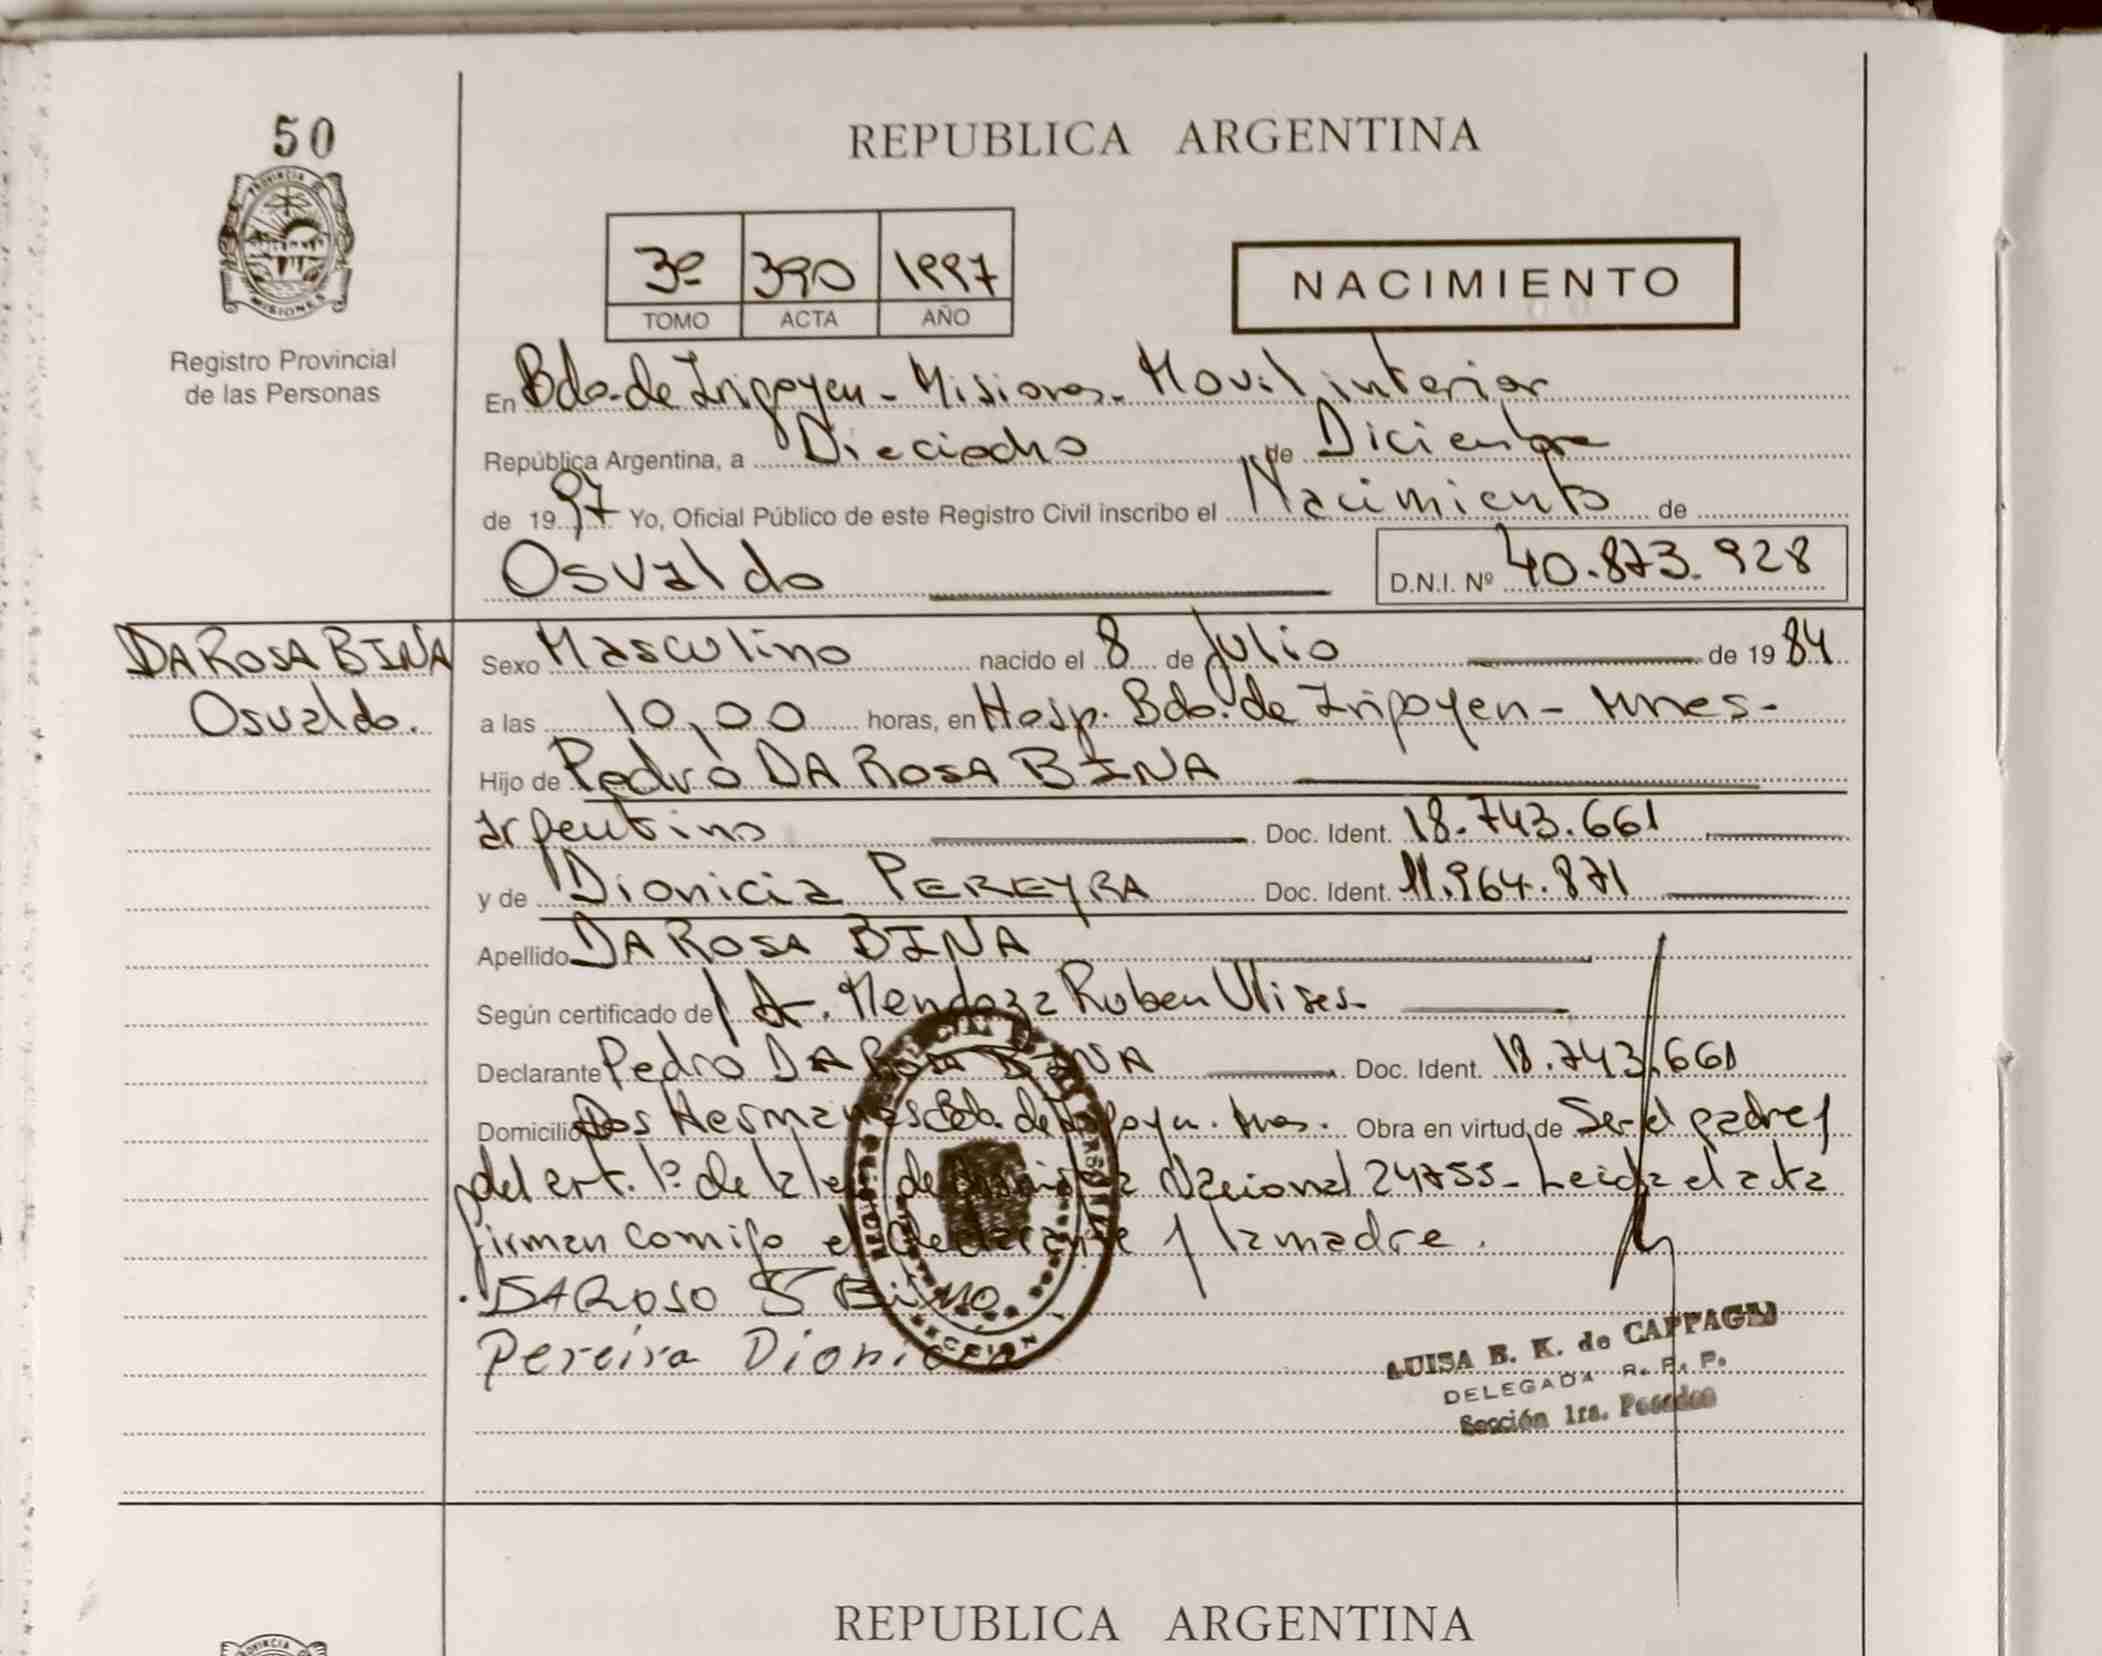 50
PROVINCIA DE
MISIONES
Registro Provincial
de las Personas
REPUBLICA ARGENTINA
3º 390 1997
TOMO ACTA AÑO
NACIMIENTO
En Bdo. de Irigoyen - Misiones. Movil interior
República Argentina, a Dieciocho de Diciembre
de 1997 Yo, Oficial Público de este Registro Civil inscribo el Nacimiento de
Osvaldo D.N.I. Nº 40.873.928
DA ROSA BINA
Osvaldo.
Sexo Masculino nacido el 8 de Julio de 1984
a las 10,00 horas, en Hosp. Bdo. de Irigoyen - Mnes -
Hijo de Pedro DA ROSA BINA
argentino Doc. Ident. 18.743.661
y de Dionicia PEREYRA Doc. Ident. 11.964.871
Apellido DA ROSA BINA
Según certificado de Mendoza Ruben Ulises -
Declarante Pedro DA ROSA BINA Doc. Ident. 18.743.661
Domicilio Dos Hermanas Bdo. de Irigoyen. Mnes. Obra en virtud de Ser el padre y
del art. 1º de la ley de Nacional 24755 - Leida el acta
firman comigo el declarante y la madre.
DAROSO BiNO
Pereira Dionicia
LUISA B. K. de
DELEGADA R. P. P.
Sección 1ra. Posadas
REPUBLICA ARGENTINA
PROVINCIA